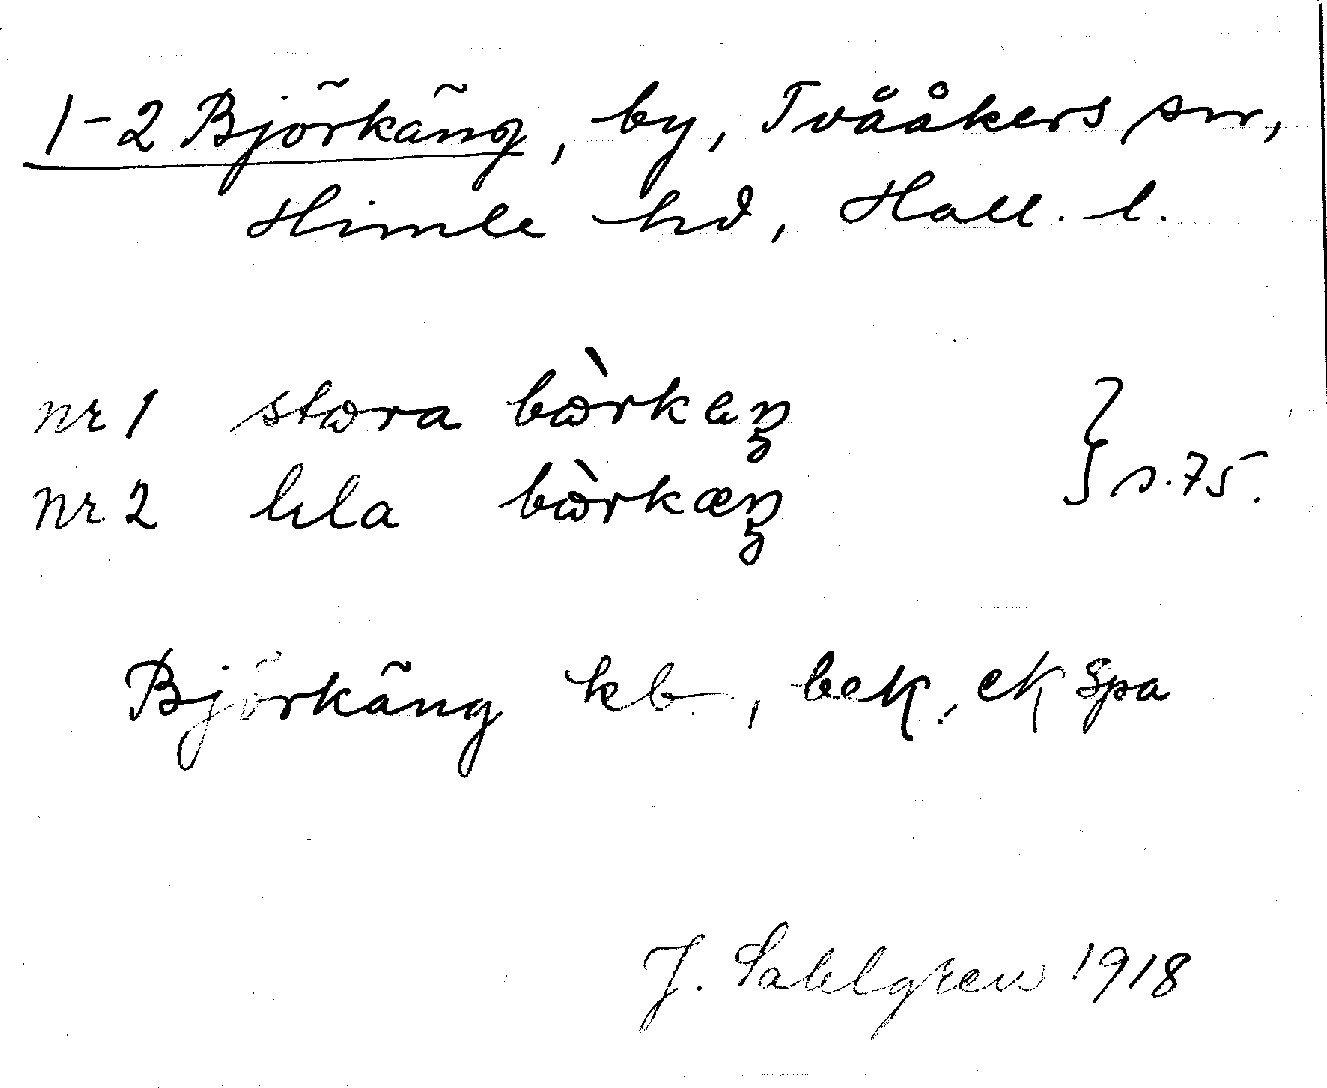 1-2 Björkäng, by, Tvååkers sn,
Himle hd, Hall. l.
nr 1 stora bòrkæŋ
nr 2 lila bòrkæŋ } s. 75.
Björkäng kb, bek, ek Spa
J. Sahlgren 1918